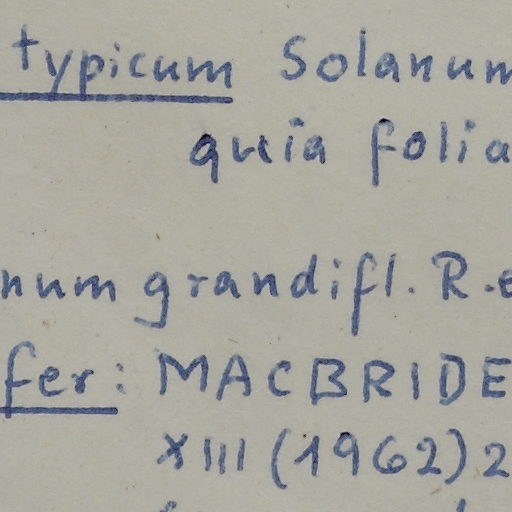 typicum Solanum
quia folia
num grandifl. R. e
fer: MACBRIDE
XIII (1962) 2